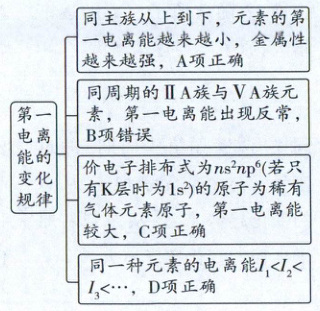 第一
电离
能的
变化
规律
同主族从上到下，元素的第
一电离能越来越小，金属性
越来越强，A项正确
同周期的ⅡA族与ⅤA族元
素，第一电离能出现反常，
B项错误
价电子排布式为ns²np⁶(若只
有K层时为1s²)的原子为稀有
气体元素原子，第一电离能
较大，C项正确
同一种元素的电离能I₁<I₂<
I₃<…，D项正确